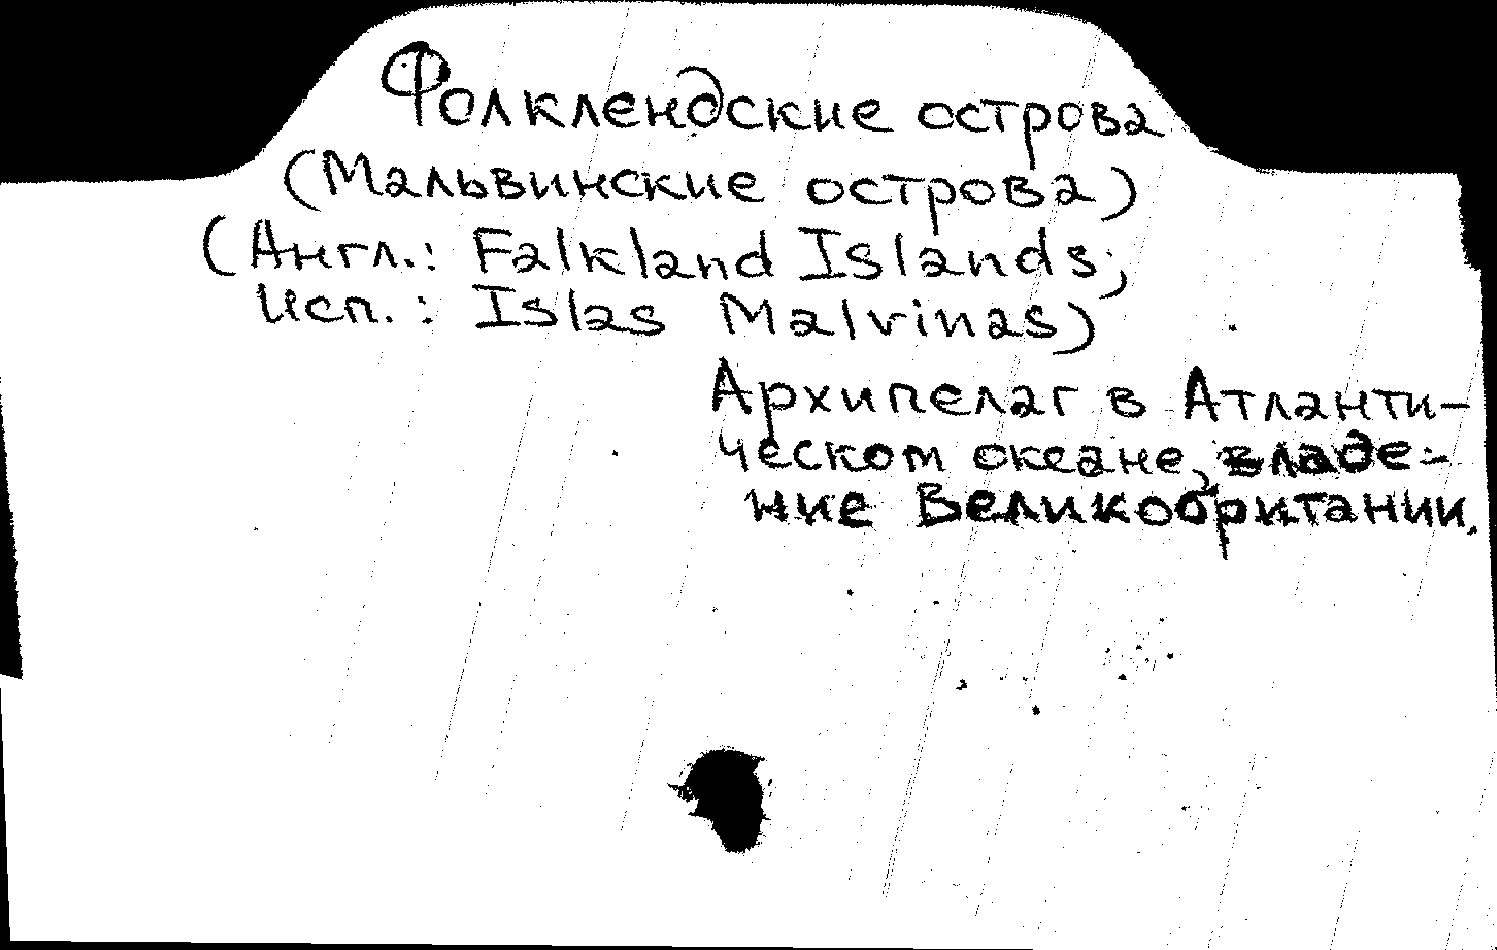 Фолклендские острова
(Мальвинские острова)
(Англ.: Falkland Islands;
Исп.: Islas Malvinas)
Архипелаг в Атланти-
ческом океане, владе-
ние Великобритании.